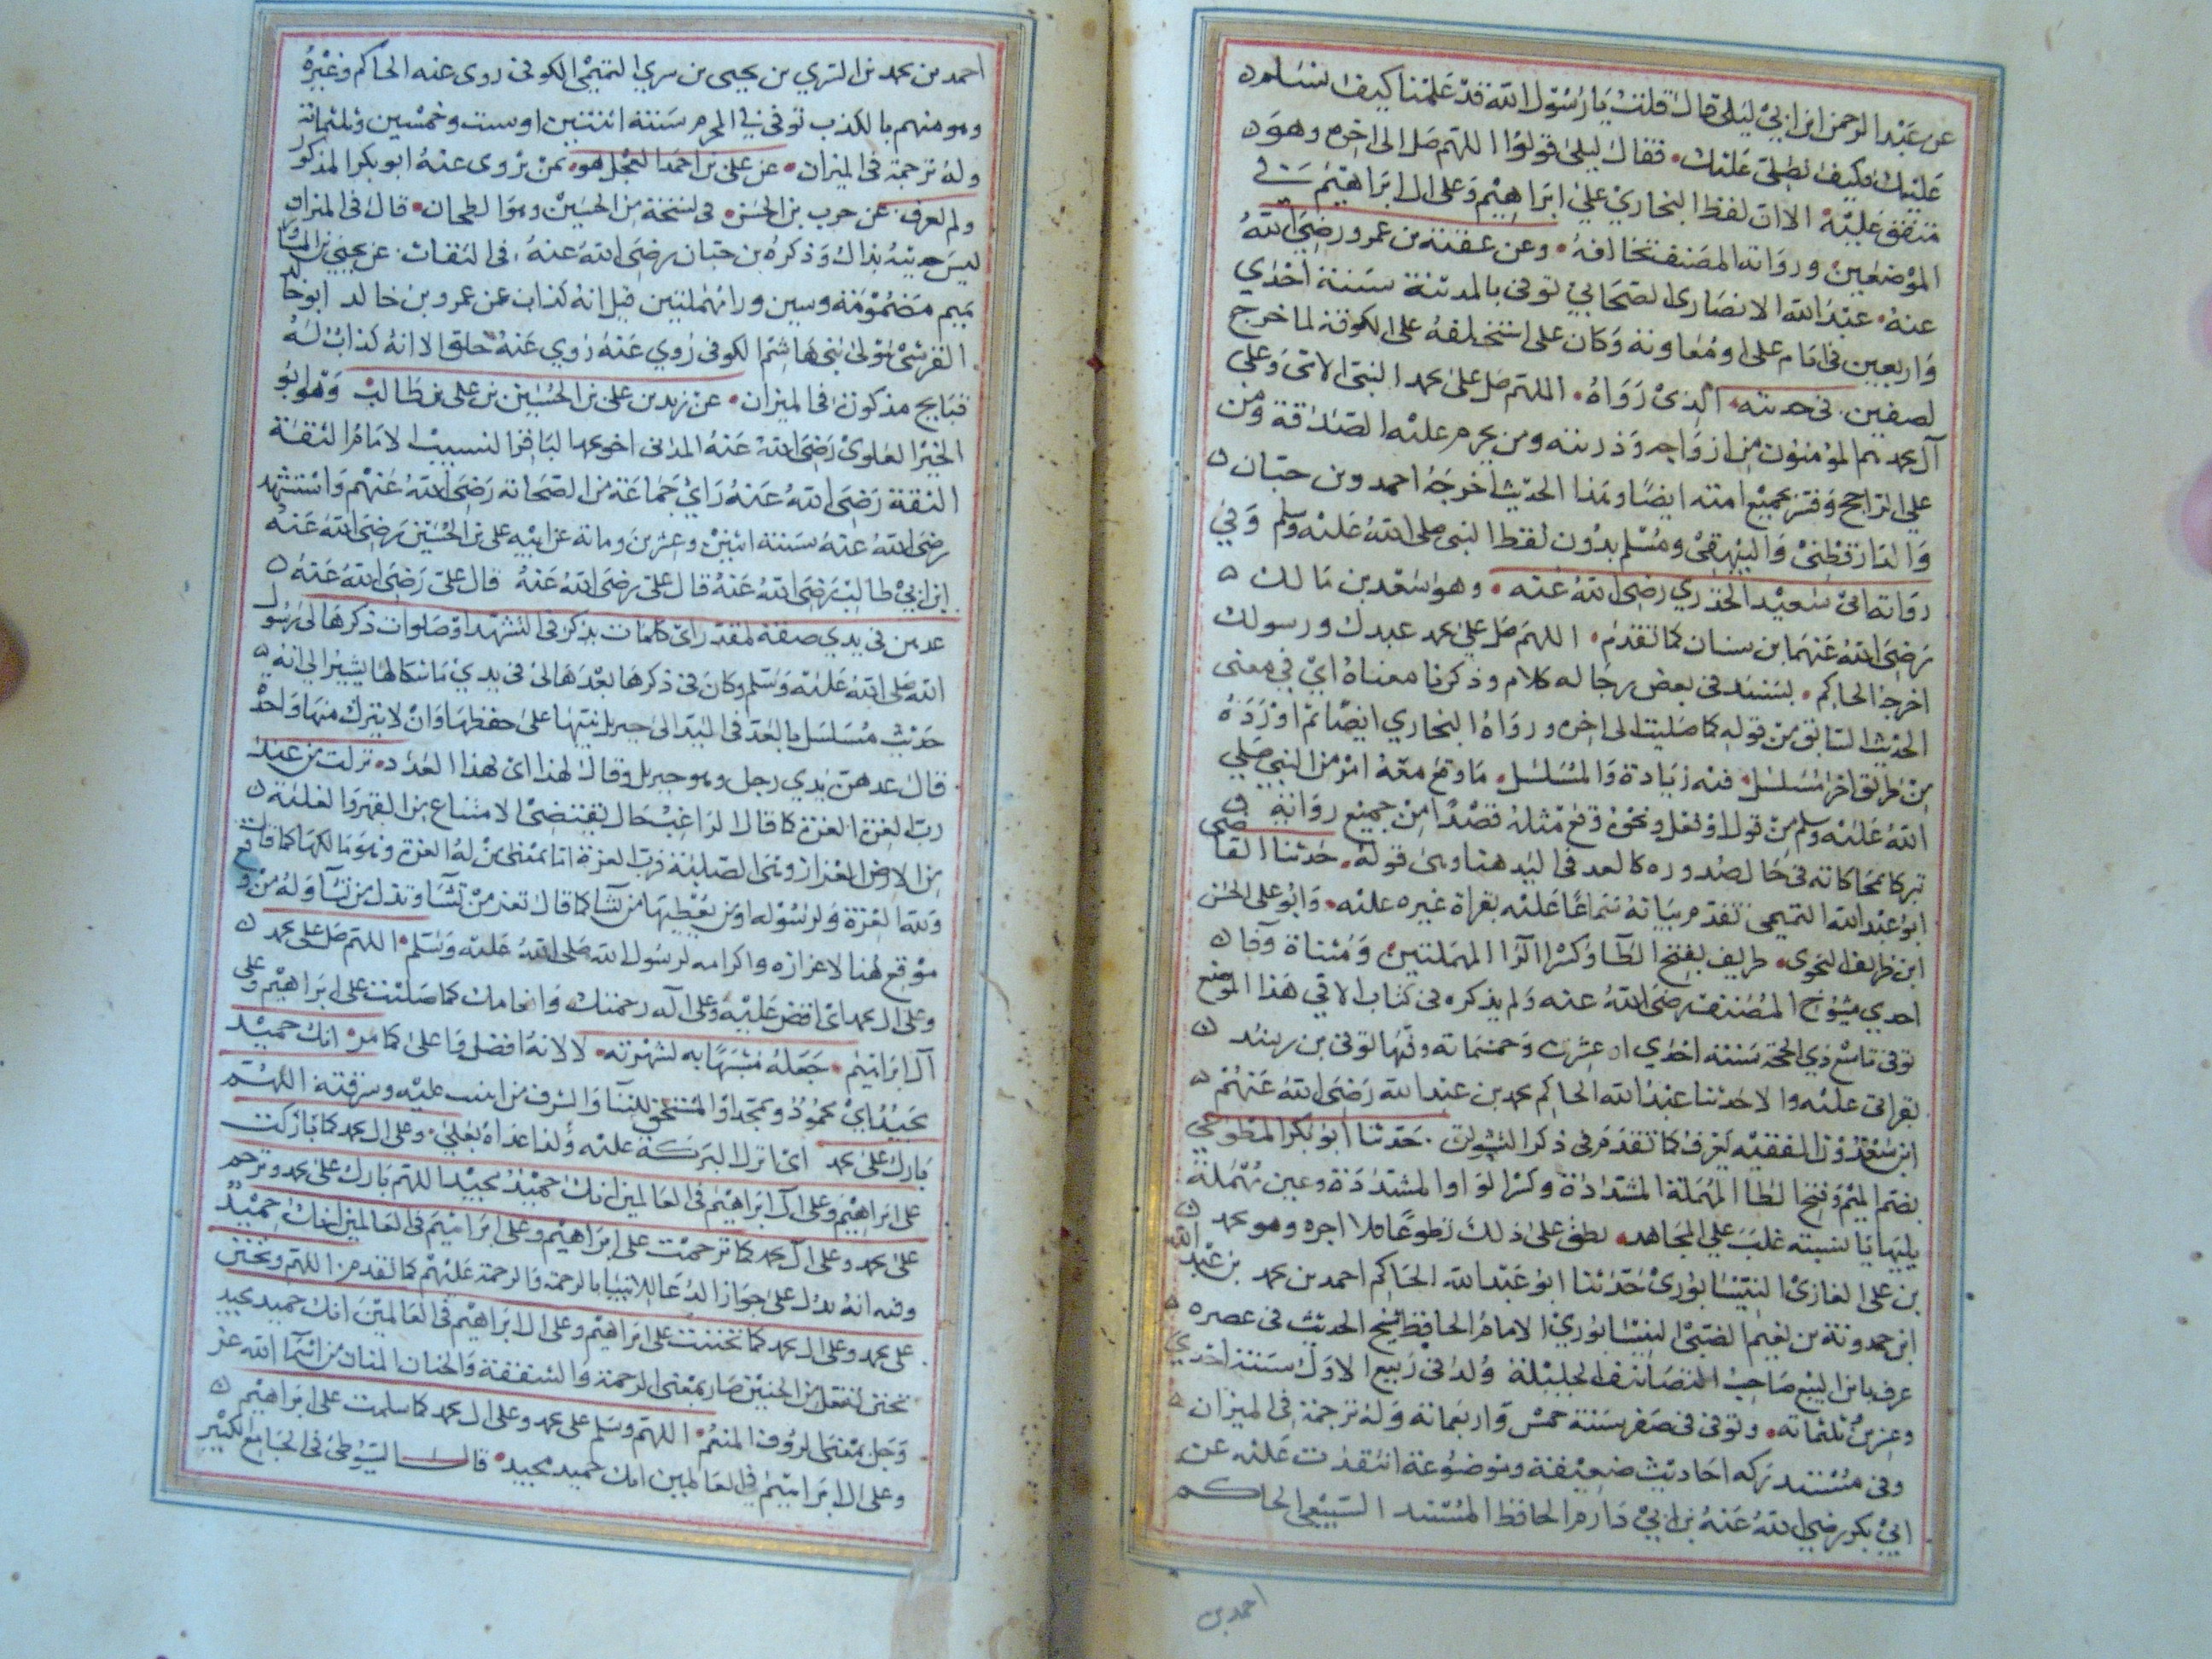 عن عبد الرحمن ابن ابي ليلى قال قلت يا رسول الله قد علمنا كيف نسلم
عليك فكيف نصلى عليك فقال ليلى قولوا اللهم صل الى اخره وهو
متفق عليه الا ان لفظ البخاري علي ابراهيم وعلى ال ابراهيم في
الموضعين ورواته المصنف تخالفه وعن عقبة بن عمرو رضي الله
عنه عبد الله الانصارى الصحابي توفى بالمدينة سنة احدي
واربعين في ايام على او معاوية وكان على استخلفه على الكوفة لما خرج
لصفين في حديثه الذى رواه اللهم صل على محمد النبى الامى وعلى
آل محمد هم المؤمنون من ازواجه وذريته ومن يحرم عليه الصدقة ومن
علي الراجح وفسر بجميع امته ايضا وهذا الحديث اخرجه احمد وبن حبان
والدارقطنى والبيهقى ومسلم بدون لفظ النبى صلى الله عليه وسلم وفي
رواية ابى سعيد الخدري رضي الله عنه وهو سعد بن مالك
رضي الله عنهما بن سنان كما تقدم اللهم صل علي محمد عبدك ورسولك
اخرجه الحاكم بسند في بعض رجاله كلام وذكرنا معناه اي في معنى
الحديث السابق من قوله كما صليت الى اخره ورواه البخاري ايضا ثم اورده
من طريق اخر مسلسل فيه زيادة والمسلسل ما وقع معه امر من النبي صلي
الله عليه وسلم من قول او فعل ونحوه وقع مثله قصدا من جميع رواته
تبركا بمحاكاته في حال صدوره كالعد في اليد هنا وهي قوله حدثنا القاضى
ابو عبد الله التميمى تقدم بيانه سماعا عليه بقراة غيره عليه وابو على الحسن
ابن طريف النحوى طريف بفتح الطا وكسر الرا المهملتين ومثناة وفا
احدي شيوخ المصنف رضي الله عنه ولم يذكره في كتابه الا في هذا الموضع
توفى تاسع ذي الحجة سنة احدي او عشرة وخمسمائة وفيها توفى بن رشد
بقراتي عليه والا حدثنا عبد الله الحاكم محمد بن عبد الله رضي الله عنهم
ابن سعدون الفقيه يعرف كما تقدم في ذكر حدثنا ابو بكر المطوعي
بضم الميم وفتح الطا المهملة المشددة وكسر الواو المشددة وعين مهملة
يليها يا نسبة غلب علي المجاهد يطلق على ذلك تطوعا بلا اجره وهو محمد
بن على الغازى النيسابورى حدثنا ابو عبد الله الحاكم احمد بن محمد بن عبد الله
ابن حمدوية بن نعيم الضبى النيسابورى الامام الحافظ شيخ الحديث في عصره
عرف بابن البيع صاحب التصانيف الجليلة ولد في ربيع الاول سنة احدي
وعشرين ثلثمائة وتوفى في صفر سنة خمس واربعمائة وله ترجمة في الميزان
وفى مستدركه احاديث ضعيفة وموضوعة انتقدت عليه عن
ابي بكر رضي الله عنه بن ابي دارم الحافظ المسند السبيعى الحاكم
احمد بن
احمد بن محمد بن السري بن يحيى بن سري التميمى الكوفى روى عنه الحاكم وغيره
وهو متهم بالكذب توفى في المحرم سنة اثنتين او ست وخمسين وثلثمائة
وله ترجمة في الميزان عن على بن احمد العجلى هو ممن يروى عنه ابو بكر المذكور
ولم يعرف عن حرب بن الحسن في نسخة بن الحسين وهو الطحان قال في الميزان
ليس حديثه بذاك وذكره بن حبان رضي الله عنه في الثقات عن يحيى بن المساور
بميم مضمومة وسين ورا مهملتين قيل انه كذاب عن عمرو بن خالد ابو خالد
القرشى مولى بنى هاشم الكوفى روي عنه روي عنه خلق الا انه كذاب له
قبايح مذكورة في الميزان عن زيد بن على بن الحسين بن على بن طالب وهو ابو
الخير العلوى رضي الله عنه المدنى اخو محمد الباقر النسيب الامام الثقة
الثقة رضي الله عنه راي جماعة من الصحابة رضي الله عنهم واستشهد
رضي الله عنه سنة اثنين وعشرين ومائة عن ابيه على بن الحسين رضي الله عنه
ابن ابي طالب رضي الله عنه قال على رضي الله عنه قال على رضي الله عنه
عدهن في يدي صفة لمقدر اى كلمات يذكر في التشهد او صلوات ذكرها لى رسول
الله صلى الله عليه وسلم وكان في ذكرها بعدها لى في يدي يشير الى انه
حديث مسلسل بالعد في اليد الى جبريل تنبيها على حفظها وان لا يترك منها واحد
قال عدهن بيدي رجل وهو جبريل وقال لهذا اى لهذا العدد نزلت من عند
رب العزة العزة كما قال الراغب حال يقتضى الامتناع من القهر والغلبة
من الارض العزاز وهى الصلبة فرب العزة اما بمعنى من له العزة وهو مالكها كما قال
ولله العزة ولرسوله او من يعطيها من يشا كما قال تعز من تشا وتذل من تشا وله موقع
موقع لهنا لاعزازه واكرامه لرسول الله صلى الله عليه وسلم اللهم صل على محمد
وعلى ال محمد اى افض عليه وعلى آله رحمتك وانعامك كما صليت على ابراهيم وعلى
آل ابراهيم جعله مشبها به لشهرته لا لانه افضل وا على كما مر انك حميد
مجيد اي محمود وممجد او المستحق للثنا والشرف اللهم
بارك على محمد اى انزل البركة عليه وعلى ال محمد كما باركت
على ابراهيم وعلى آل ابراهيم في العالمين انك حميد مجيد اللهم بارك على محمد وترحم
على محمد وعلى آل محمد كما ترحمت على ابراهيم وعلى ابراهيم في العالمين انك حميد
وفيه انه يدل على جواز الدعا للانبيا بالرحمة والرحمة عليهم كما تقدم اللهم وتحنن
على محمد وعلى ال محمد كما تحننت على ابراهيم وعلى ال ابراهيم في العالمين انك حميد مجيد
تحنن تفعل من الحنين صار بمعنى الرحمة والشفقة والحنان المنان من اسما الله عز
وجل بمعنى الروف المنعم اللهم وسلم على محمد وعلى ال محمد كما سلمت على ابراهيم
وعلى ال ابراهيم في العالمين انك حميد مجيد قال السيوطى في الجامع الكبير